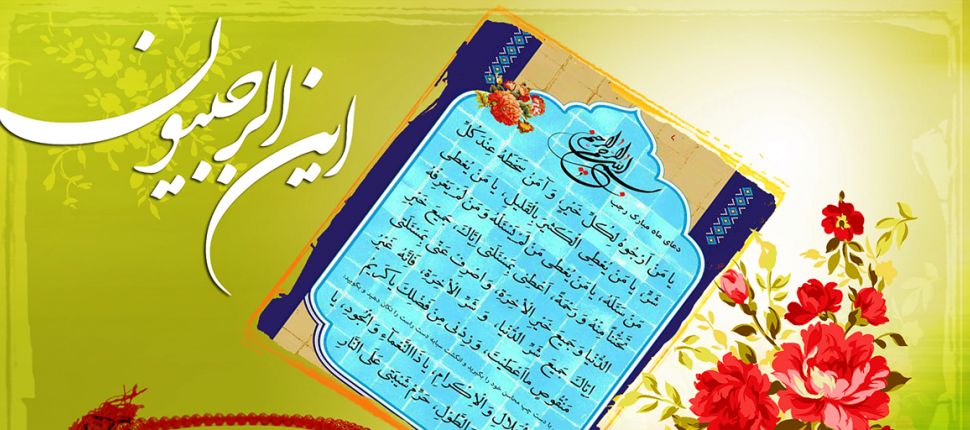 این الرجبیون
بسم الله الرحمن الرحیم
دعای ماه مبارک رجب
یا مَنْ اَرْجُوهُ لِکُلِّ خَیْرٍ وَ آمَنُ سَخَطَهُ عِنْدَ کُلِّ
شَرٍّ، یا مَنْ یُعْطِی الْکَثیرَ بِالْقَلیلِ، یا مَنْ یُعْطی
مَنْ سَئَلَهُ، یا مَنْ یُعْطی مَنْ لَمْ یَسْئَلْهُ وَ مَنْ لَمْ یَعْرِفْهُ
تَحَنُّناً مِنْهُ وَ رَحْمَةً، اَعْطِنی بِمَسْئَلَتی اِیّاکَ جَمیعَ خَیْرِ
الدُّنْیا وَ جَمیعَ خَیْرِ الْاخِرَةِ، وَ اصْرِفْ عَنّی بِمَسْئَلَتی
اِیّاکَ جَمیعَ شَرِّ الدُّنْیا، وَ شَرِّ الْاخِرَةِ، فَاِنَّهُ غَیْرُ
مَنْقُوصٍ ما اَعْطَیْتَ، وَ زِدْنی مِنْ فَضْلِکَ یا کَریمُ
الْجَلالِ وَ الْاِکْرامِ، یا ذَا النَّعْمآءِ وَ الْجُودِ، یا
الطَّوْلِ، حَرِّمْ شَیْبَتی عَلَی النّارِ